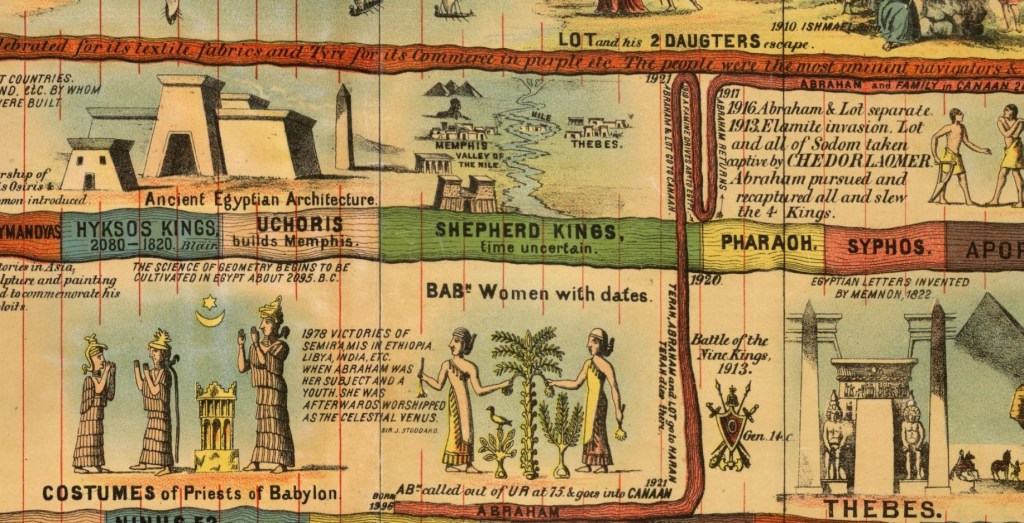 1910 ISHMAEL
LOT and his 2 DAUGTERS escape.
lebrated for its textile fabrics and Tyre for its Commerce in purple etc. The people were the most eminent navigators &
T COUNTRIES.
ND, Etc. BY WHOM
WERE BUILT
rship of
is Osiris &
mon introduced
Ancient Egyptian Architecture.
MEMPHIS
VALLEY OF
THE NILE.
NILE
THEBES.
1921
ABRAHAM & LOT GO TO CANAAN.
1917
ABRAHAM RETURNS
ABRAHAM and FAMILY in CANAAN 2
1916. Abraham & Lot separate.
1913. Elamite invasion. Lot
and all of Sodom taken
captive by CHEDORLAOMER
Abraham pursued and
recaptured all and slew
the 4 Kings.
YMANDYAS
HYKSOS KINGS,
2080-1820. Blair
UCHORIS
builds Memphis.
SHEPHERD KINGS,
time uncertain.
PHARAOH.
SYPHOS.
APOP
tories in Asia,
lpture and painting
d to commemorate his
ploits.
THE SCIENCE OF GEOMETRY BEGINS TO BE
CULTIVATED IN EGYPT ABOUT 2095. B.C.
1978 VICTORIES OF
SEMIRAMIS IN ETHIOPIA
LIBYA, INDIA, ETC.
WHEN ABRAHAM WAS
HER SUBJECT AND A
YOUTH. SHE WAS
AFTERWARDS WORSHIPPED
AS THE CELESTIAL VENUS.
SIR J. STODDARD.
COSTUMES of Priests of Babylon.
BABN Women with dates.
1920.
TERAH, ABRAHAM and LOT go to HARAN
TERAH dies there.
Battle of the
Nine Kings,
1913.
Gen. 14 c.
EGYPTIAN LETTERS INVENTED
BY MEMNON, 1822.
THEBES.
ABM called out of UR at 75. & goes into CANAAN
1921
BORN
1996
ABRAHAM
NINUS 52